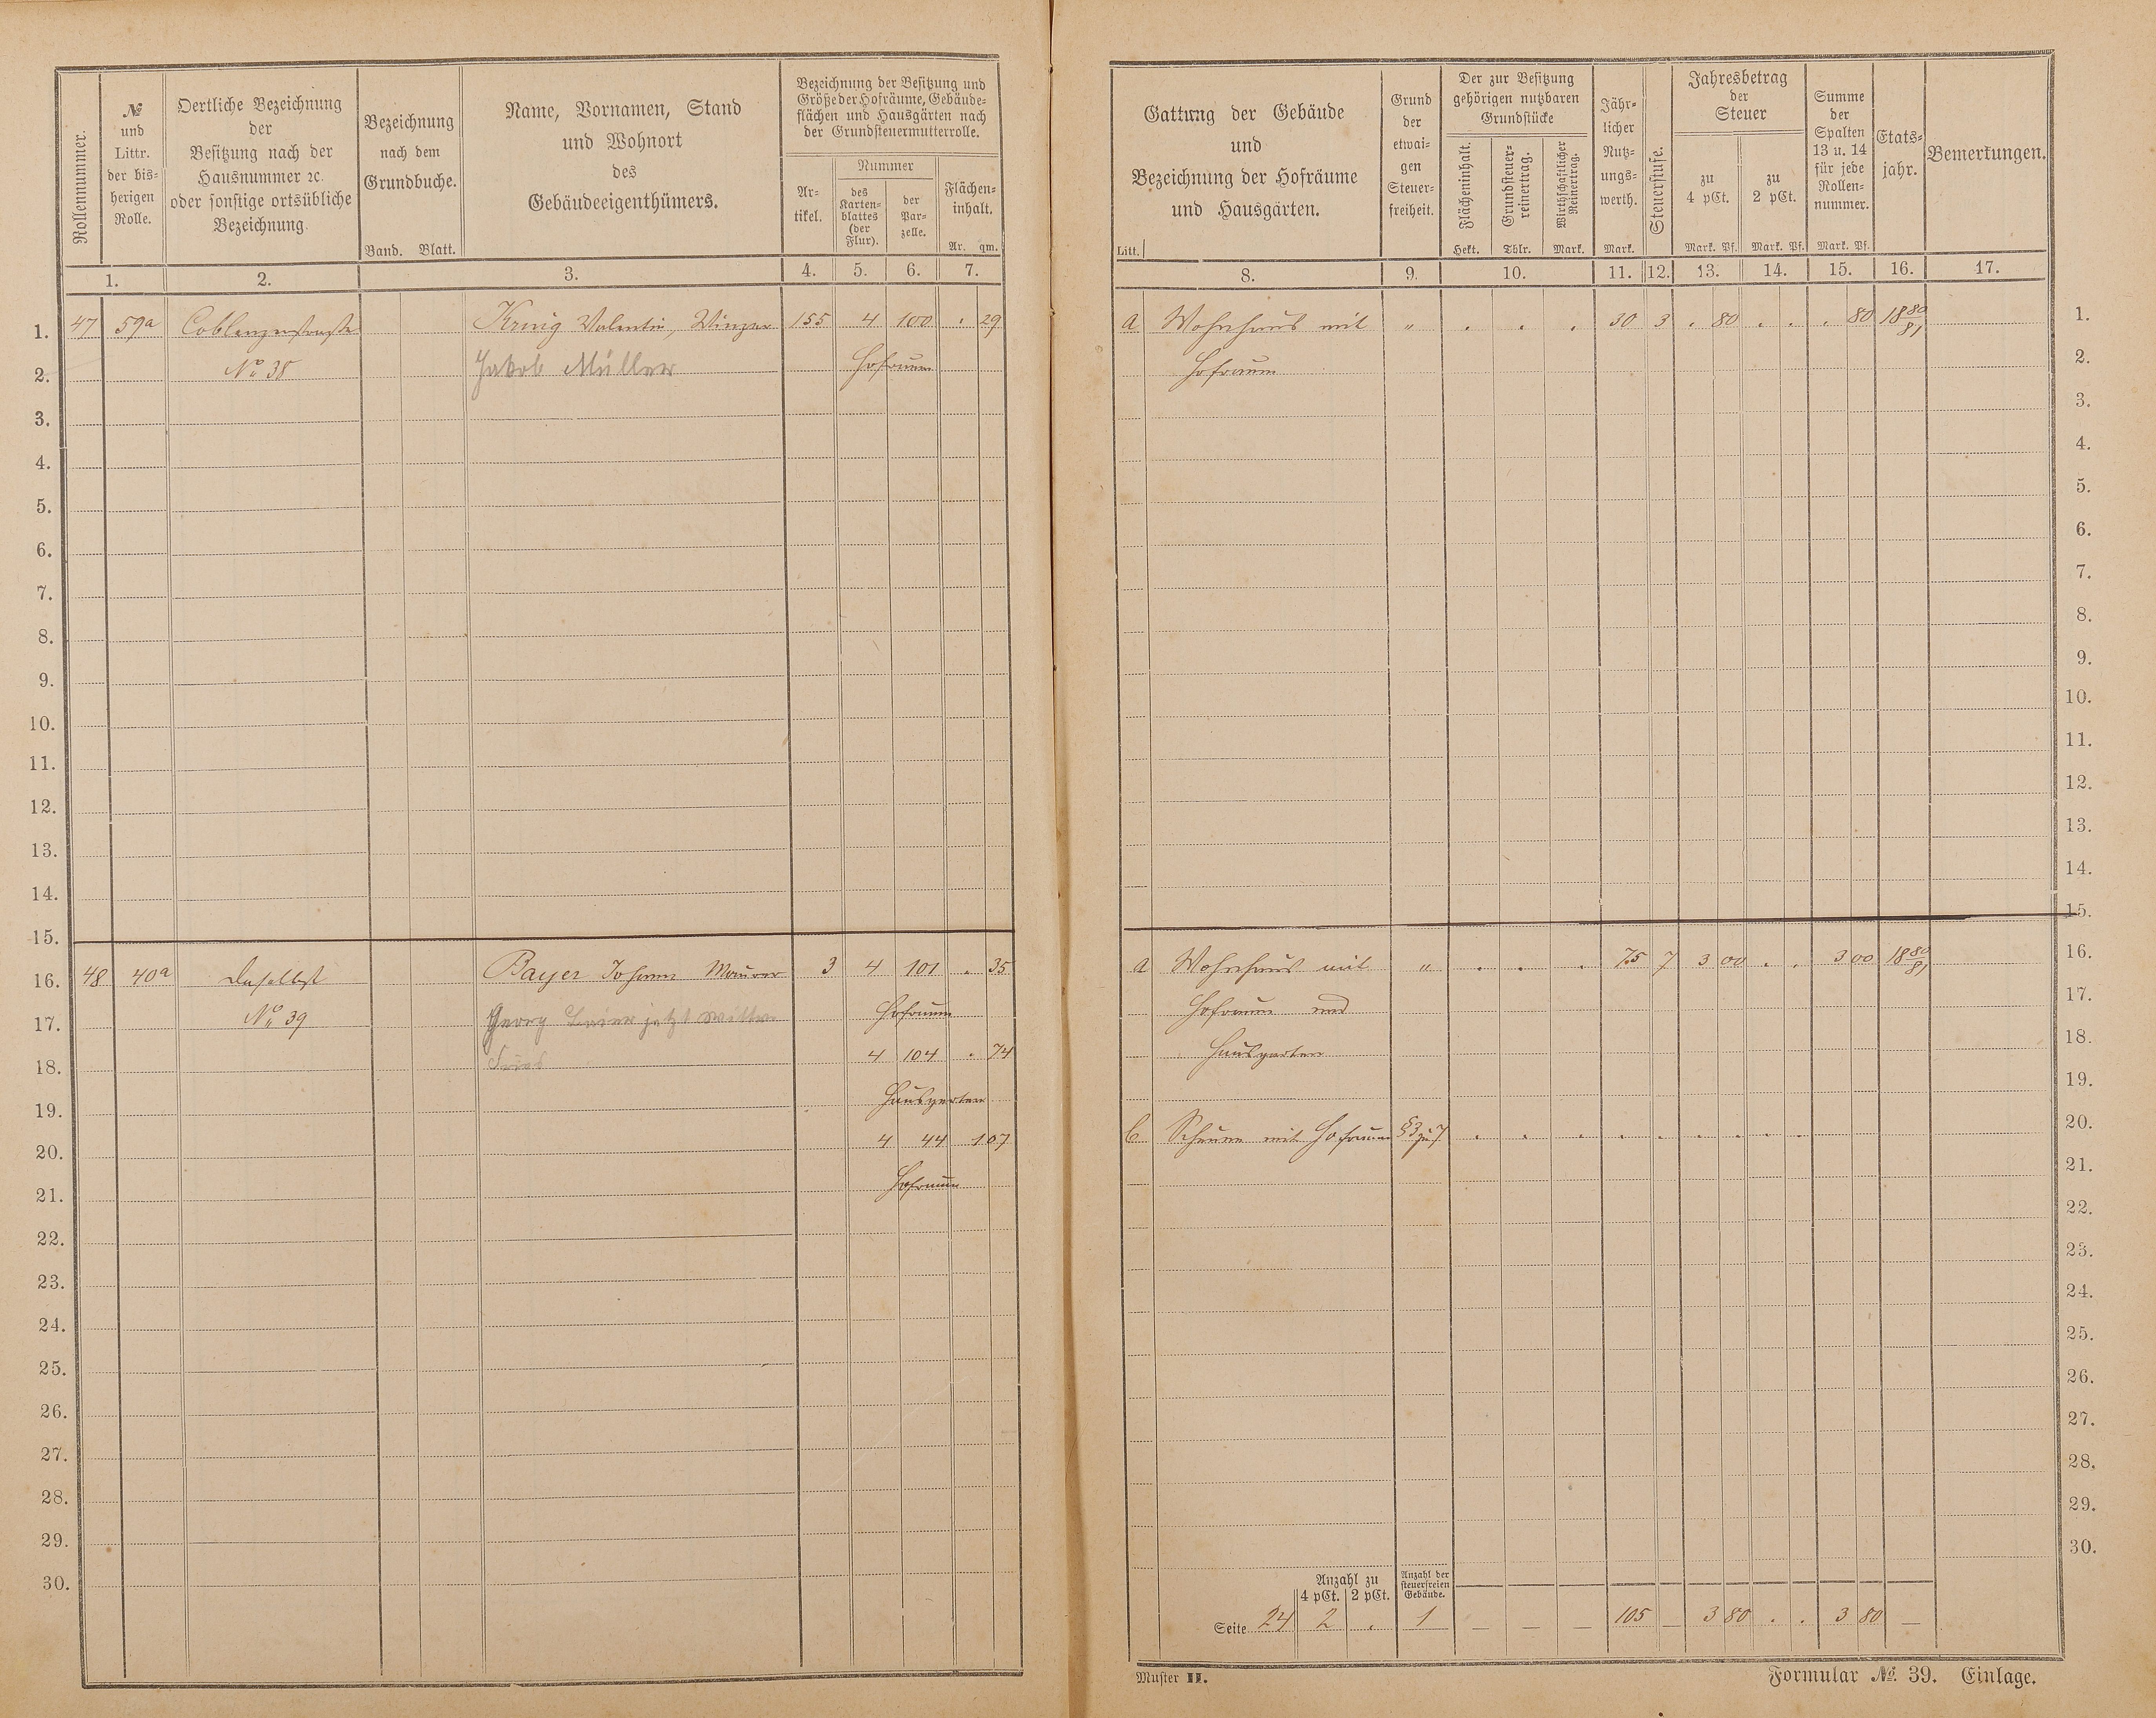 Rollennummer.
№
und
Littr.
der bis-
herigen
Rolle.
Oertliche Bezeichnung
der
Besitzung nach der
Hausnummer ꝛc.
oder sonstige ortsübliche
Bezeichnung.
Bezeichnung
nach dem
Grundbuche.
Band. Blatt.
Name, Vornamen, Stand
und Wohnort
des
Gebäudeeigenthümers.
Bezeichnung der Besitzung und
Größe der Hofräume, Gebäude-
flächen und Hausgärten nach
der Grundsteuermutterrolle.
Ar-
tikel.
Nummer
des
Karten-
blattes
(der
Flur).
der
Par-
zelle.
Flächen-
inhalt.
Ar. qm.
1. 2. 3. 4. 5. 6. 7.
1. 47 59a Coblenzerstraße Valentin, Winzer 155 4 100 . 29
2. No 38 Jakob Müller Hofraum
3.
4.
5.
6.
7.
8.
9.
10.
11.
12.
13.
14.
15.
16. 48 40a Daselbst Bayer Johann Maurer 3 4 101 . 35
17. No 39 Georg jetzt Hofraum
18. 4 104 . 74
19. Hausgarten
20. 4 44 1 07
21. Hofraum
22.
23.
24.
25.
26.
27.
28.
29.
30.
Gattung der Gebäude
und
Bezeichnung der Hofräume
und Hausgärten.
Litt.
Grund
der
etwai-
gen
Steuer-
freiheit.
Der zur Besitzung
gehörigen nutzbaren
Grundstücke
Flächeninhalt.
Hekt.
Grundsteuer-
reinertrag.
Thlr.
Wirthschaftlicher
Reinertrag.
Mark.
Jähr-
licher
Nutz-
ungs-
werth.
Mark.
Steuerstufe.
Jahresbetrag
der
Steuer
zu
4 pCt.
Mark. Pf.
zu
2 pCt.
Mark. Pf.
Summe
der
Spalten
13 u. 14
für jede
Rollen-
nummer.
Mark. Pf.
Etats-
jahr.
Bemerkungen.
8. 9. 10. 11. 12. 13. 14. 15. 16. 17.
a Wohnhaus mit " . . . 30 3 . 80 . . . 80 1880/81 1.
Hofraum 2.
3.
4.
5.
6.
7.
8.
9.
10.
11.
12.
13.
14.
15.
a Wohnhaus mit " . . . 75 7 3 00 . . 3 00 1880/81 16.
Hofraum und 17.
Hausgarten 18.
19.
b Scheune mit Hofraum . . . . . . . . . 20.
21.
22.
23.
24.
25.
26.
27.
28.
29.
30.
Anzahl zu
4 pCt. 2 pCt.
Anzahl der
steuerfreien
Gebäude.
Seite 24 2 . 1 — — — 105 — 3 80 . . 3 80 —
Muster II.
Formular №. 39. Einlage.